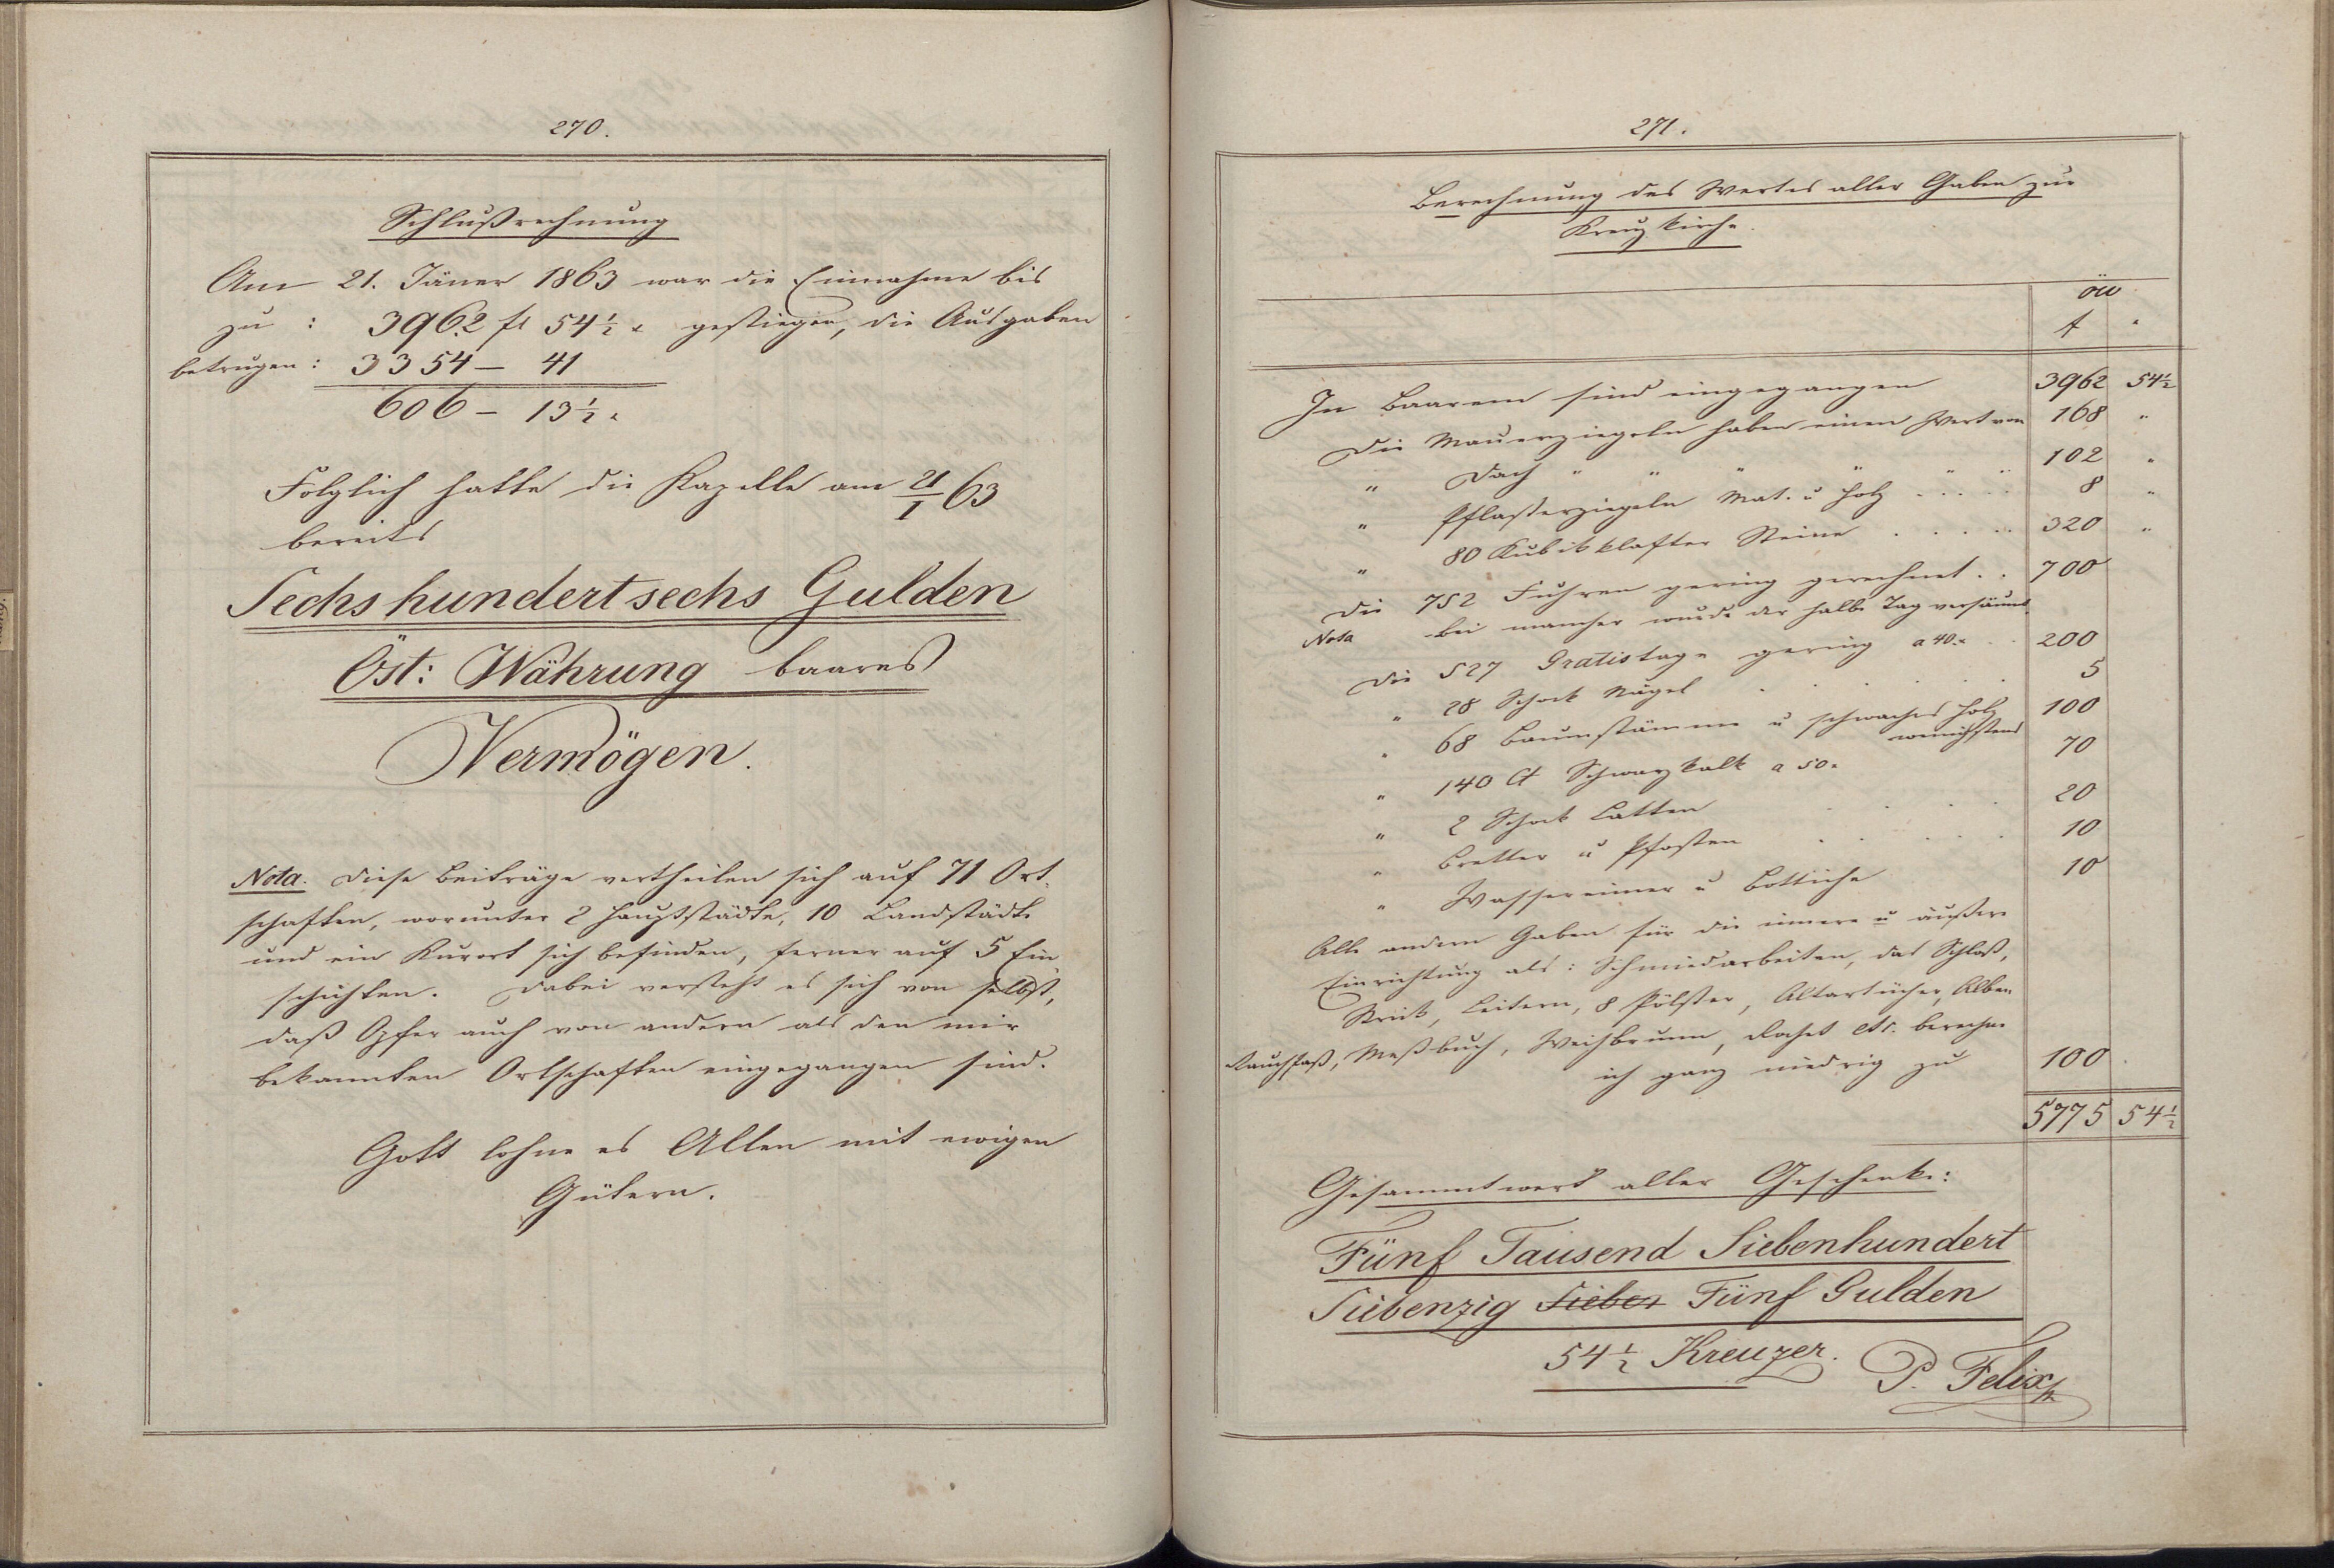 270.
Schlußrechnung
Am 21. Jäner 1863 war die Einnahme bis
zu : 3962 fl 54½ x gestiegen, die Ausgaben
betrugen : 3354 – 41
606 – 13½ x
Folglich hatte die Kapelle am 21/I 63
bereits
Sechshundertsechs Gulden
Öst: Währung baares
Vermögen.
Nota. Diese Beiträge vertheilen sich auf 71 Ort-
schaften, worunter 2 Hauptstädte, 10 Landstädte
und ein Kurort sich befinden, ferner auf 5 Ein
schichten. Dabei versteht es sich von selbst,
daß Opfer auch von andern als den mir
bekannten Ortschaften eingegangen sind.
Gott lohne es Allen mit ewigen
Gütern.
271.
Berechnung des Wertes aller Gaben zur
Kreuzkirche.
öw
f x
In Baarem sind eingegangen 3962 54½
Die Mauerziegeln haben einen Wert von 168 "
" Dach " " " " " " 102 "
" Pflasterziegeln Mat. u Holz . . . . 8 "
" 80 Kubikklafter Steine . . . . . 320 "
Die 752 Fuhren gering gerechnet . . 700
Nota bei mancher wurde der halbe Tag versäumt
Die 527 Gratistage gering a 40x . . 200
" 28 Schock Nägel . . . . . . 5
" 68 Baumstämme u schwaches Holz 100
wenigstens
" 140 Ct Schwarzkalk a 50x 70
" 2 Schock Latten . . . . 20
" Bretter u Pfosten . . . . . 10
" Wassereimer u Bottiche 10
Alle andern Gaben für die innere u äußere
Einrichtung als : Schmiedarbeiten, das Schloß,
Strick, Leitern, 8 Pölster, Altartücher, Alben
Rauchfaß, Meßbuch, Weihbrunn, Rochet etc. berechne
ich ganz niedrig zu 100
5775 54½
Gesammtwert aller Geschenke:
Fünf Tausend Siebenhundert
Siebenzig Sieben Fünf Gulden
54½ Kreuzer. P. Felix